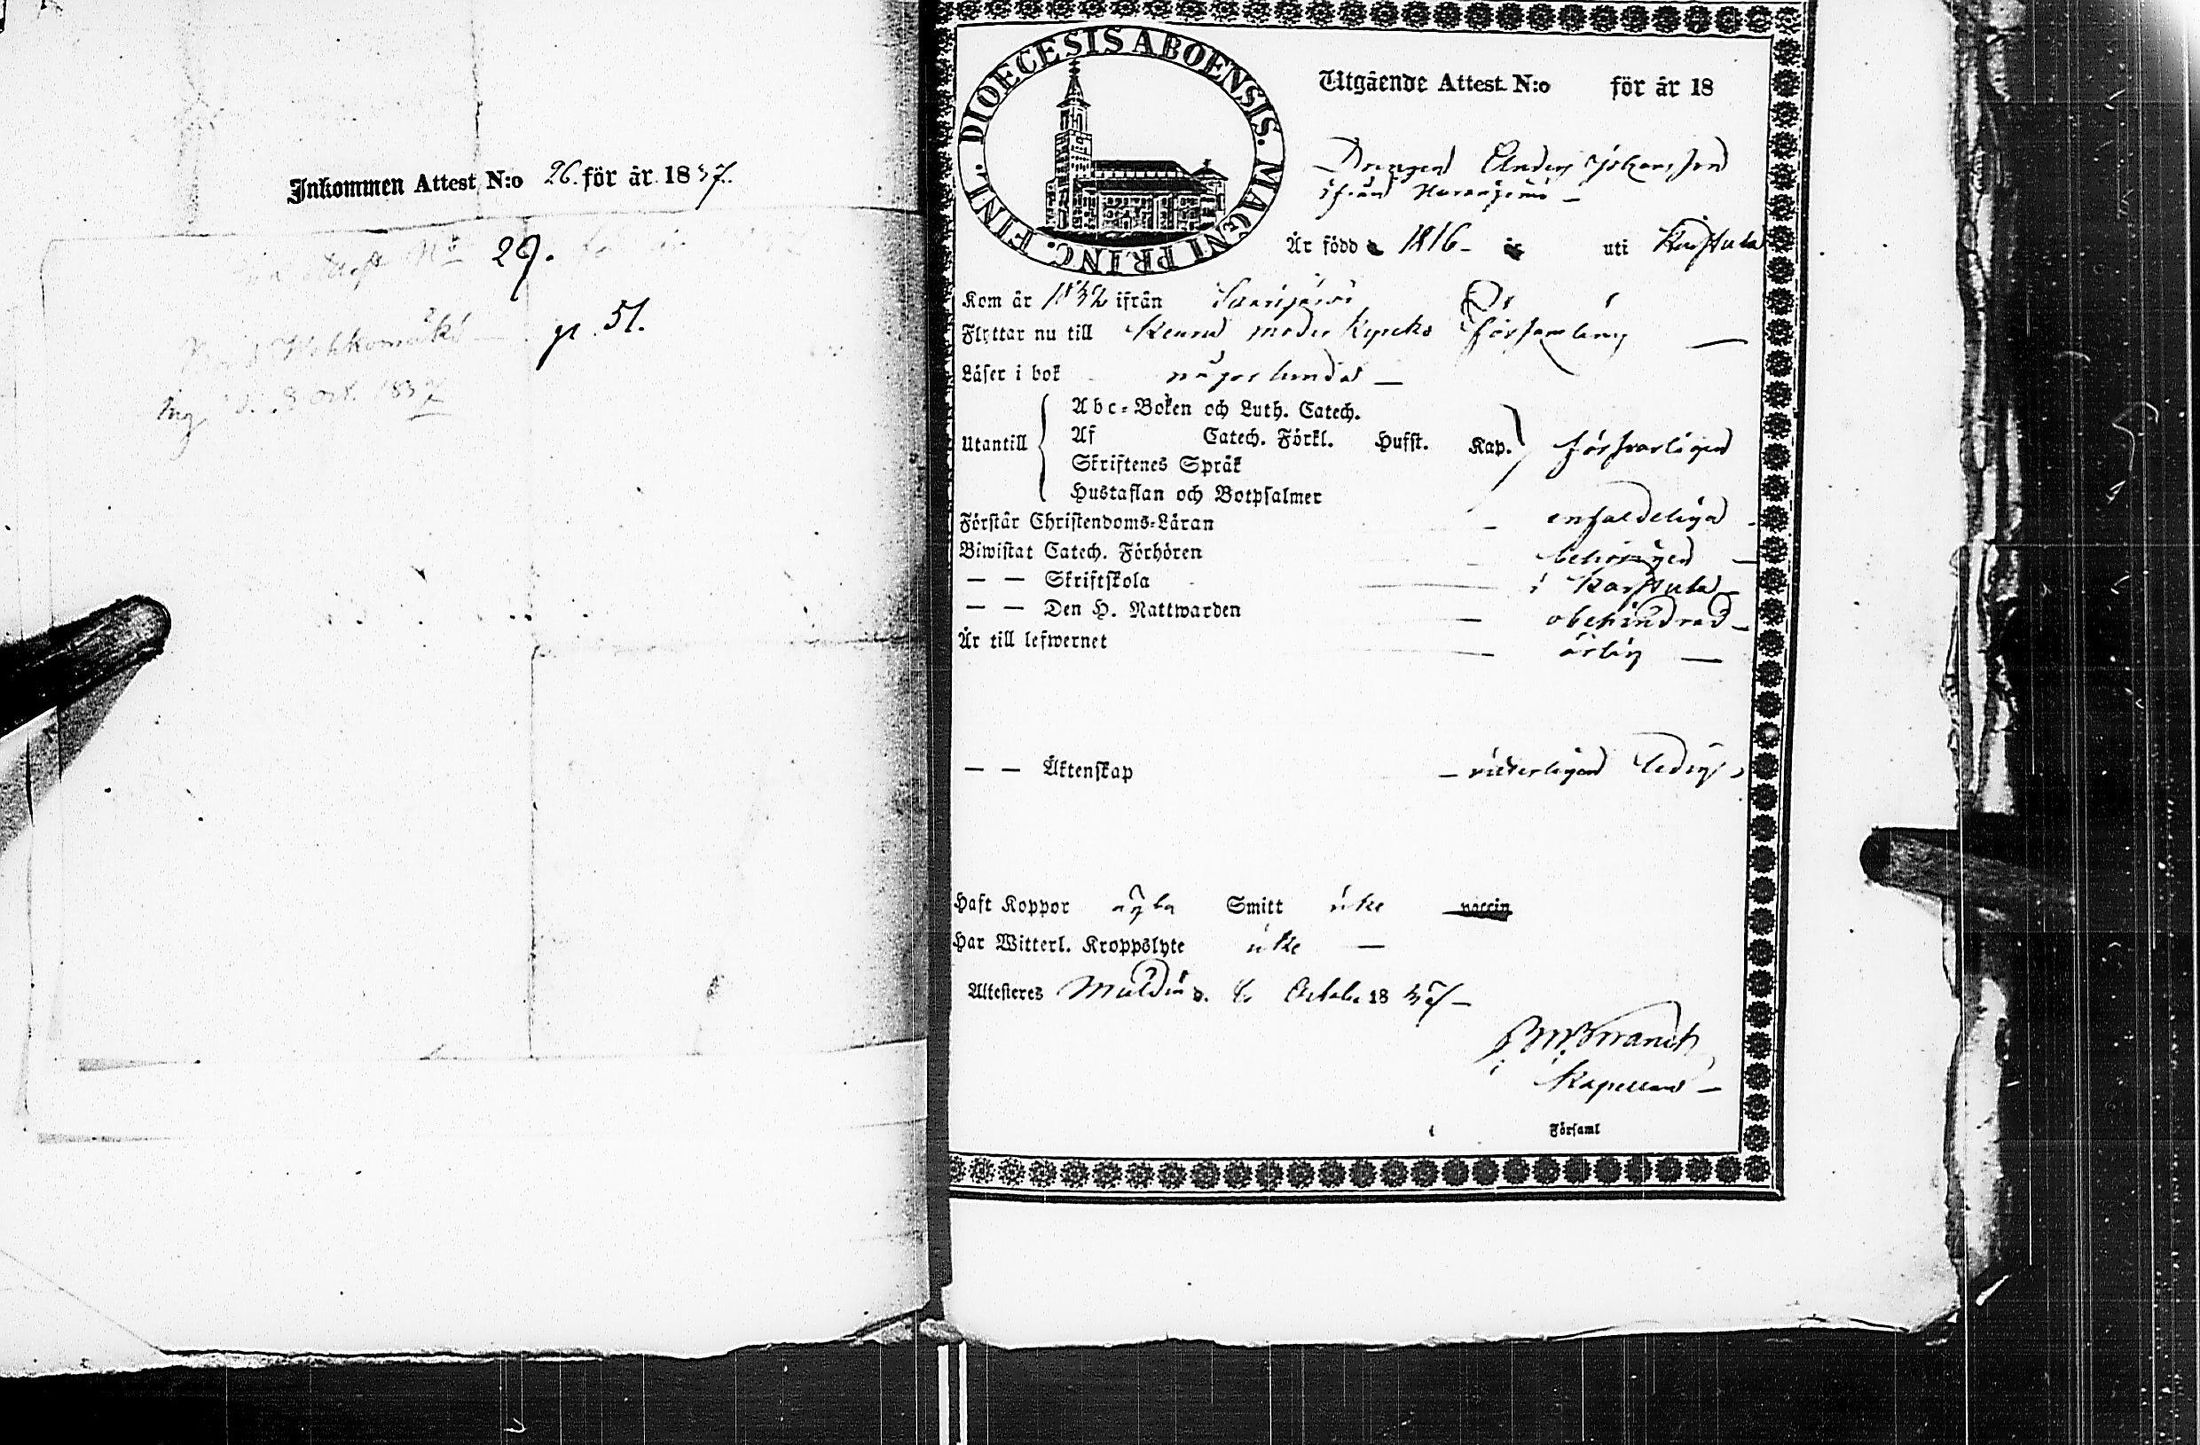 Inkommen Attest N:o 26. för år 1837.
29.
p. 51.
d. 8 Oct. 1837
DIOECESIS ABOENSIS. MAGNI PRINC. FINL.
Utgående Attest N:o för år 18
Drengen Anders Johansson
ifrån
Är född 1816 - uti Karstula
Kom år 1832 ifrån Saarijärvi
Flyttar nu till Keuru moder kyrko församling —
Läser i bok någorlunda —
Utantill
Abc-Boken och Luth. Catech.
Af Catech. Förkl. Husst. Kap. försvarligen
Skriftenes Språk
Hustaflan och Botpsalmer
Förstår Christendoms-Läran — enfaldeliga —
Biwistat Catech. Förhören — behörigen —
— — Skriftskola — i Karstula —
— — Den H. Nattwarden — obehindrad —
Är till lefwernet — ärlig —
— — Äktenskap — vitterligen ledig
Haft Koppor ägta Smitt icke vaccin
Har Witterl. Kroppslyte icke —
Attesteres Multia d. October 18
Kapellan —
i Församl